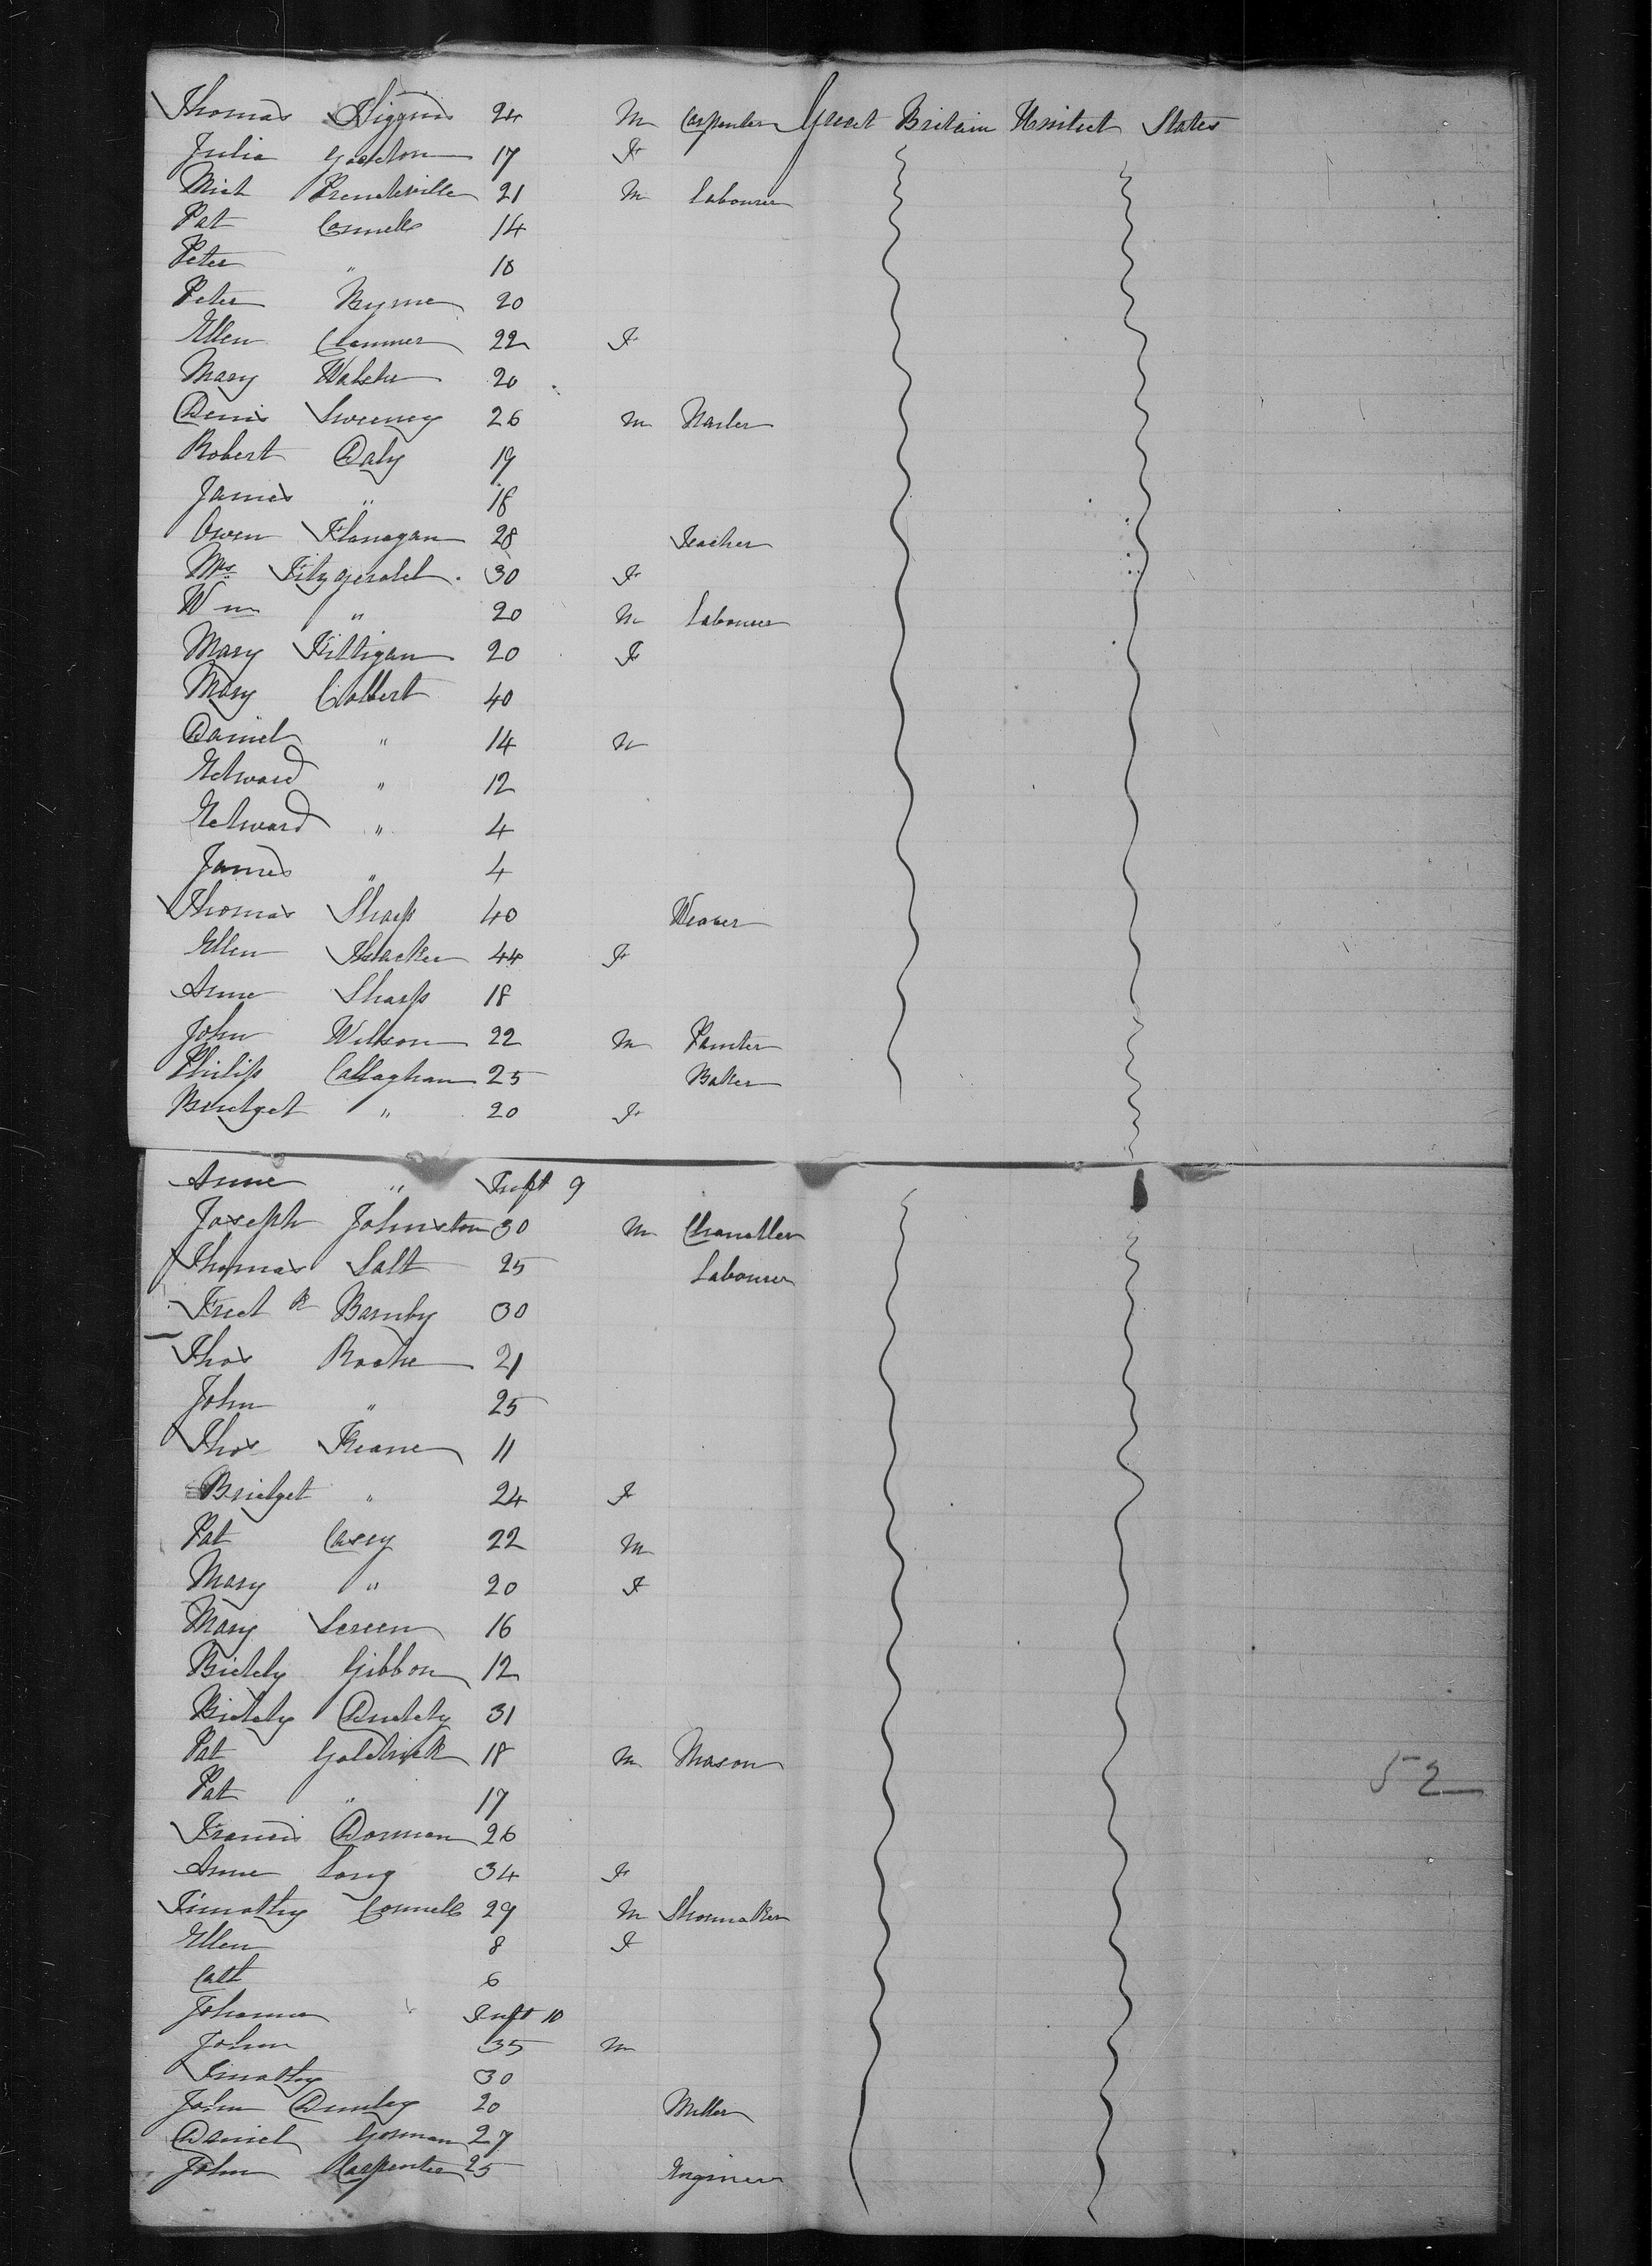 Thomas Higgins 24 M Carpenter Great Britain United States
Julia 17 F
Mich Prendeville 21 M Labourer
Pat Connells 14
Peter " 18
Peter Byrne 20
Ellen Clanmer 22 F
Mary Walshe 20
Denis Sweeney 26 M Nailer
Robert Daly 19
James " 18
Owen Flanagan 28 Teacher
Mrs Fitzgerald 30 F
Wm " 20 M Labourer
Mary Kittigan 20 F
Mary Colbert 40
Daniel " 14 M
Edward " 12
Edward " 4
James " 4
Thomas Sharp 40 Weaver
Ellen Thacker 44 F
Anne Sharp 18
John Wilson 22 M Painter
Philip Callaghan 25 Baker
Bridget " 20 F
Anne " Inft 9
Joseph Johnston 30 M Chandler
Thomas Salt 25 Labourer
Fred k Barnby 30
Thos Roche 21
John " 25
Thos Keane 11
Bridget " 24 F
Pat Casey 22 M
Mary " 20 F
Mary 16
Biddy Gibbon 12
Biddy Duddy 31
Pat Goldrick 18 M Mason
Pat " 17
52
Francis Dorman 26
Anne Long 34 F
Timothy Connells 29 M Shoemaker
Ellen 8 F
Cath 6
Johanna Inft 10
John 35 M
Timothy 30
John 20 Miller
Daniel Gorman 27
John Carpenter 25 Engineer